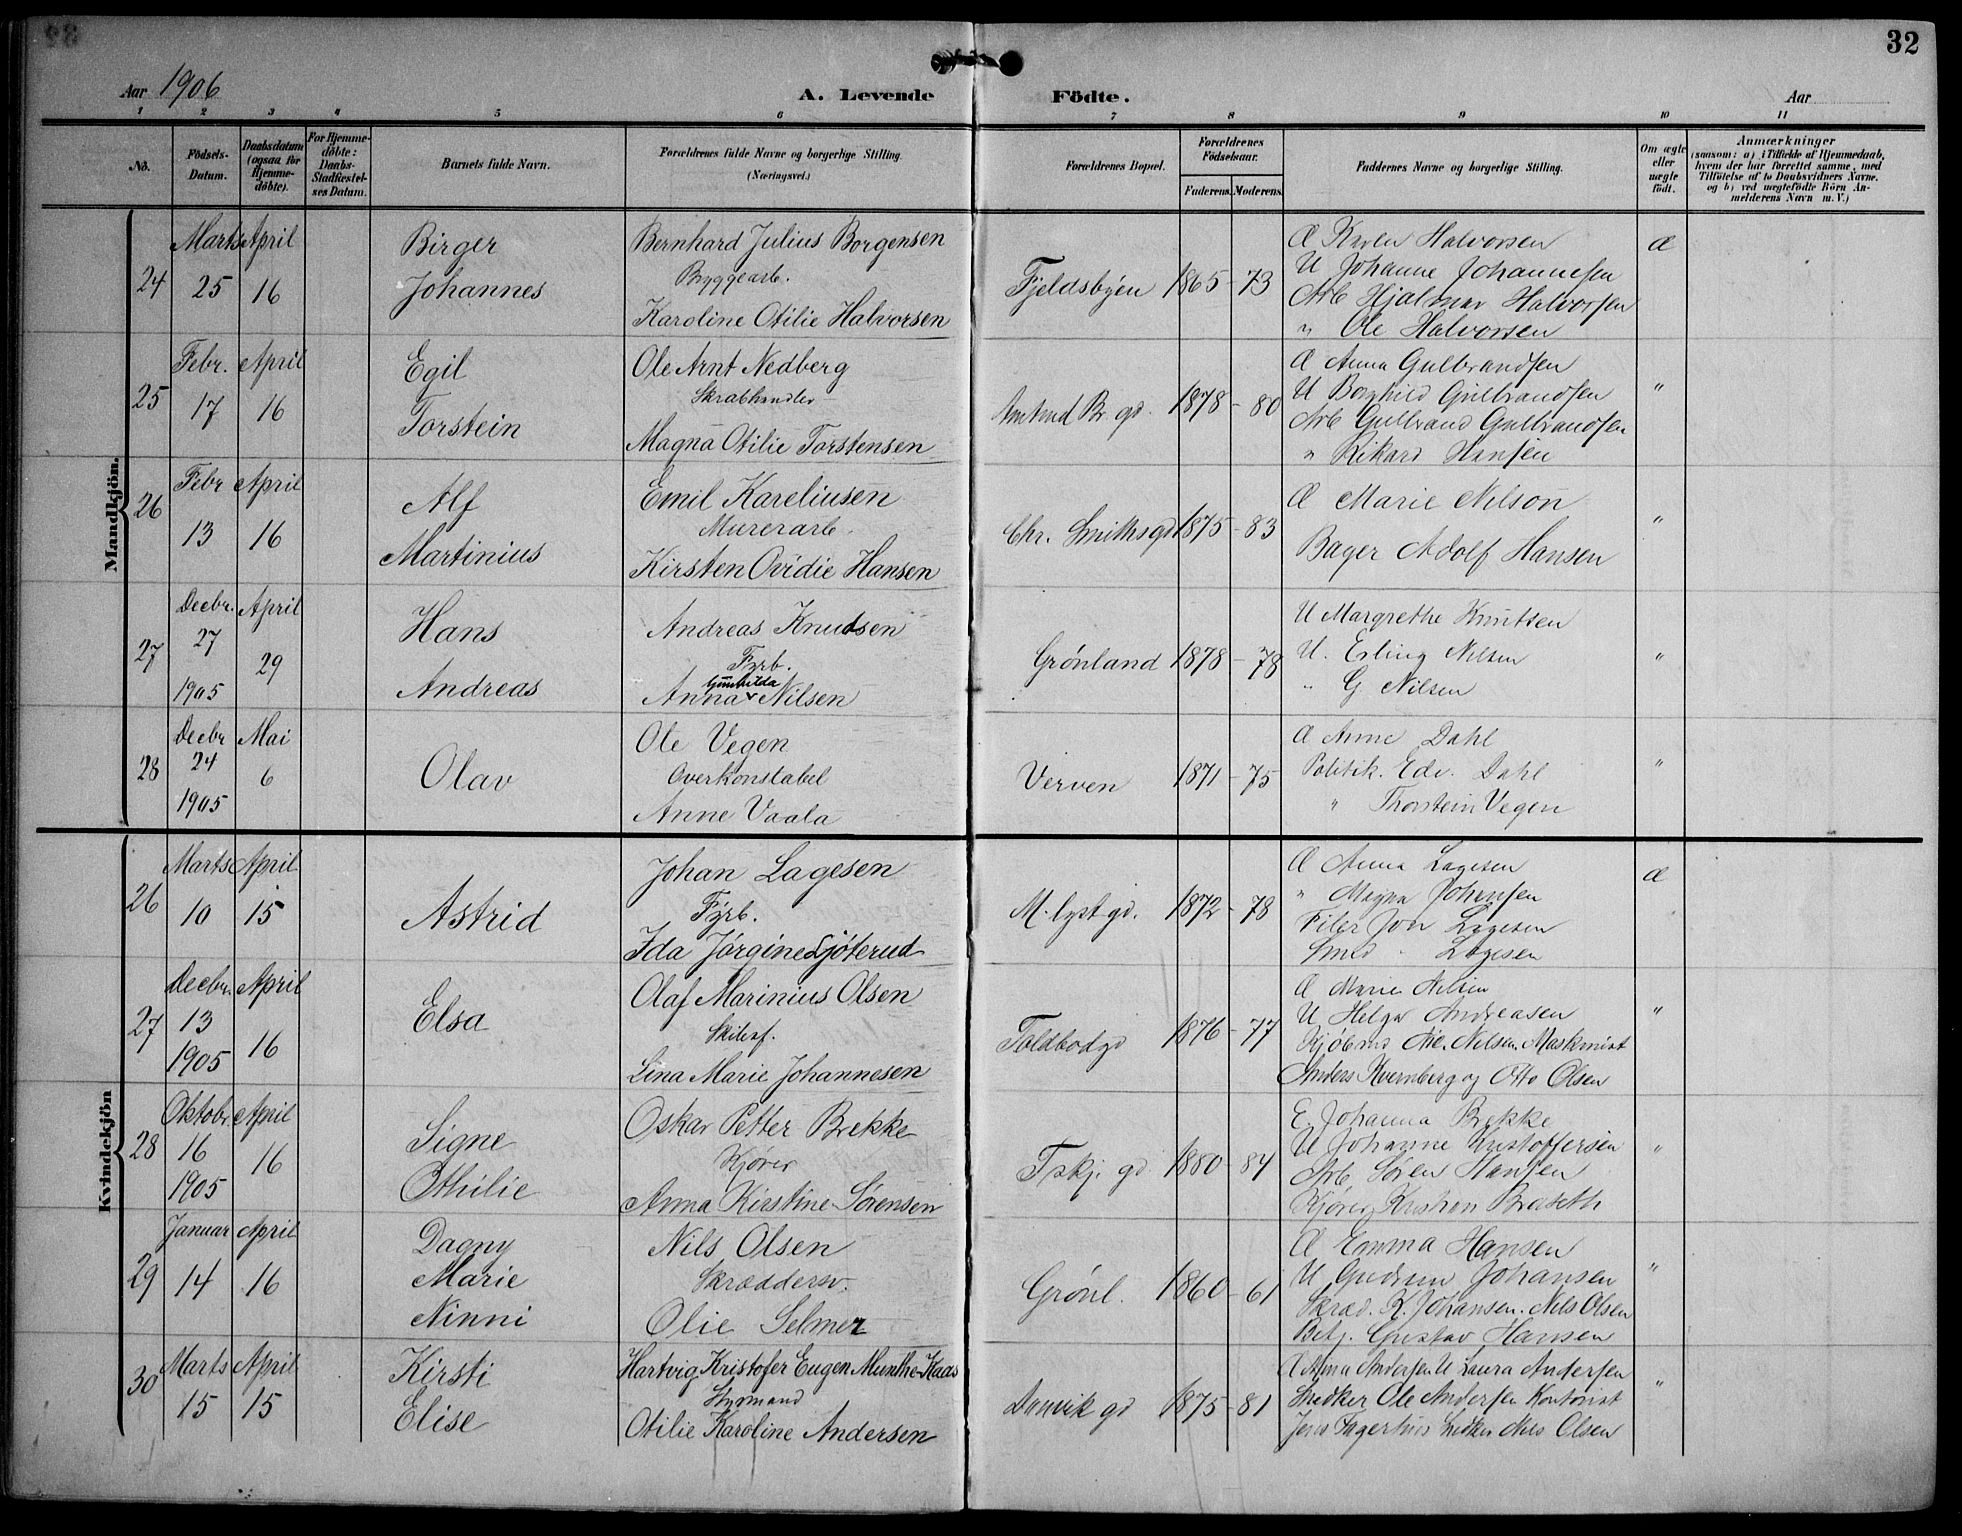 32
Aar 1906
A. Levende Födte.
Aar
1 2 3 4 5 6 7 8 9 10 11
Nö.
Födsels-
Datum.
Daabsdatum
(ogsaa for
Hjemme-
döbte).
For Hjemme-
döbte:
Daabs-
Stadfæstel-
ses Datum.
Barnets fulde Navn.
Forældrenes fulde Navne og borgerlige Stilling.
(Næringsvei.)
Forældrenes Bopæl.
Forældrenes
Födselsaar.
Faderens. Moderens.
Faddernes Navne og borgerlige Stilling.
Om ægte
eller
uægte
født.
Anmærkninger
(saasom: a) i Tilfælde af Hjemmedaab,
hvem der har forrettet samme, med
Tilföielse af to Daabsvidners Navne,
og b) ved uægtefödte Börn An-
melderens Navn m. V.)
Mandkjön.
24 Marts 25 April 16
Birger
Johannes
Bernhard Julius Borgensen
Byggearb.
Karoline Otilie Halvorsen
Fjeldsbyen 1865 - 73
Æ Karen Halvorsen
U Johanne Johannesen
Arb Hjalmar Halvorsen
" Ole Halvorsen
æ
25 Febr. 17 April 16
Egil
Torstein
Ole Arnt Nedberg
Skrabhandler
Magna Otilie Torstensen
Br gd. 1878 - 80
Æ Anna Gulbrandsen
U Borghild Gulbrandsen
Arb Gulbrand Gulbrandsen
" Rikard Hansen
"
26 Febr 13 April 16
Alf
Martinius
Emil Kareliusen
Murerarb.
Kirsten Ovidie Hansen
Chr. Smiths gd 1875 - 83
Æ Marie Nilson
Bager Adolf Hansen
"
27 Decbr. 27 1905 April 29
Hans
Andreas
Andreas Knudsen
Fyrb.
Gunhilda
Anna Nilsen
Grønland 1878 - 78
U Margrethe Knutsen
U. Erling Nilsen
" G Nilsen
"
28 Decbr 24 1905 Mai 6
Olav
Ole Vegen
Overkonstabel
Anne Vaala
Verven 1871 - 75
Æ Anne Dahl
Politik. Edv. Dahl
" Thorstein Vegen
"
Kvindekjön
26 Marts 10 April 15
Astrid
Johan Lagesen
Fyrb.
Ida Jørgine Gjøterud
M. lyst gd. 1872 - 78
Æ Anna Lagesen
" Magna Johansen
Filer Jon Lagesen
Smed " Lagesen
æ
27 Decbr. 13 1905 April 16
Elsa
Olaf Marinius Olsen
Lina Marie Johannesen
Toldbodgd 1876 - 77
Æ Marie Nilsen
U Helga Andreasen
Kjøbmd Nilsen. Maskinist
Anders Kvernberg og Otto Olsen
"
28 Oktobr 16 1905 April 16
Signe
Othilie
Oskar Petter Brekke
Kjører
Anna Kirstine Sørensen
Tskj. gd. 1880 - 84
E. Johanna Brekke
U Johanne Kristoffersen
Arb Søren Hansen
Kjører Kristian Braseth
"
29 Januar 14 April 16
Dagny
Marie
Ninni
Nils Olsen
Skræddersv.
Olie Selmer
Grønl. 1860 - 61
Æ Emma Hansen
U Gudrun Johansen
Skræd. K. Johansen. Nils Olsen
Betj. Gustav Hansen
"
30 Marts 15 April 15
Kirsti
Elise
Hartvig Kristofer Eugen Munthe-Kaas
Styrmand
Otilie Karoline Andersen
Danvik gd 1875 - 81
Æ Anna Andersen U Laura Andersen
Snedker Ole Andersen Kontorist
Jens Fagertuns Snedker Nils Olsen
"